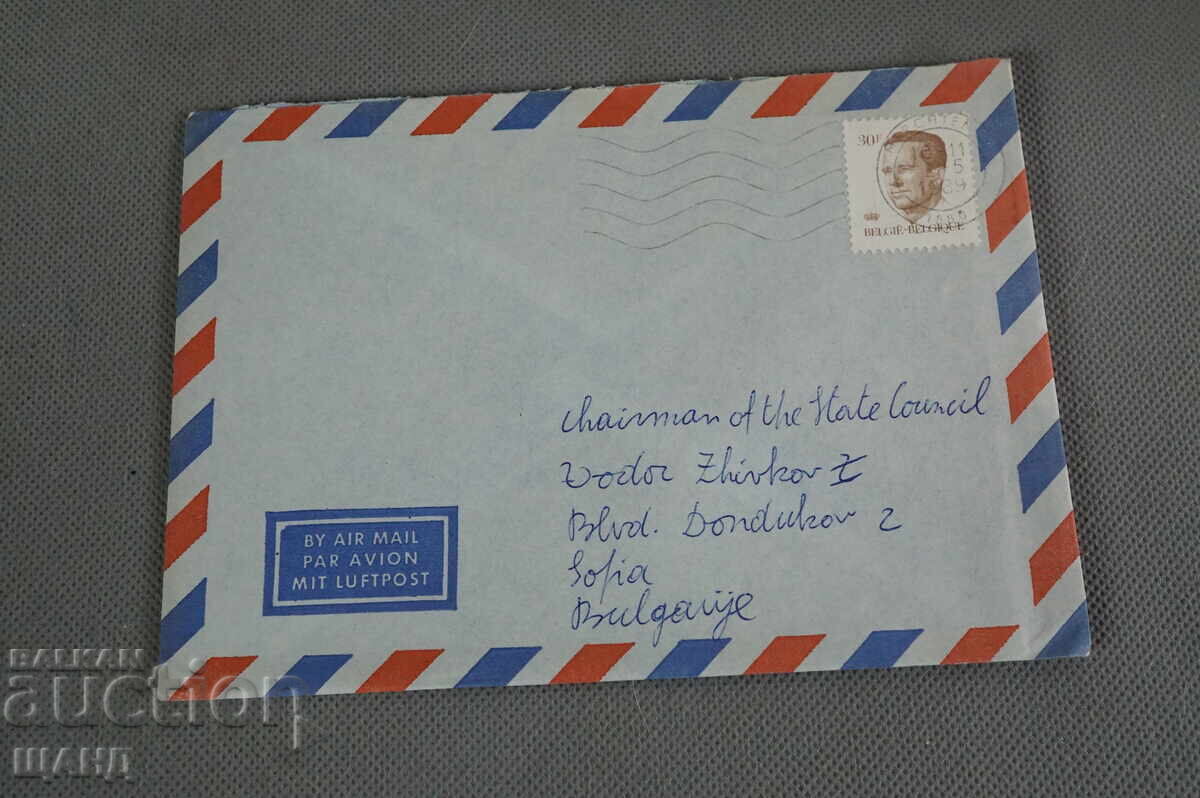 30F
11
5
1989
BELGIË-BELGIQUE
Chairman of the State Council
Todor Zhivkov
Blvd. Dondukov 2
Sofia
Bulgarije
BY AIR MAIL
PAR AVION
MIT LUFTPOST
BALKAN
auction
ШАНД